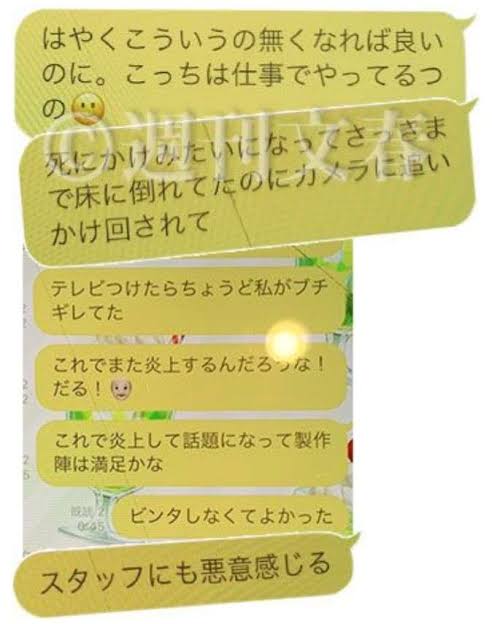 はやくこういうの無くなれば良い
のに。こっちは仕事でやってるつ
の
©週刊文春
死にかけみたいになってさっきま
で床に倒れてたのにカメラに追い
かけ回されて
テレビつけたらちょうど私がブチ
ギレてた
これでまた炎上するんだろうな！
だる！
これで炎上して話題になって製作
陣は満足かな
既読 2
0:45
ビンタしなくてよかった
スタッフにも悪意感じる